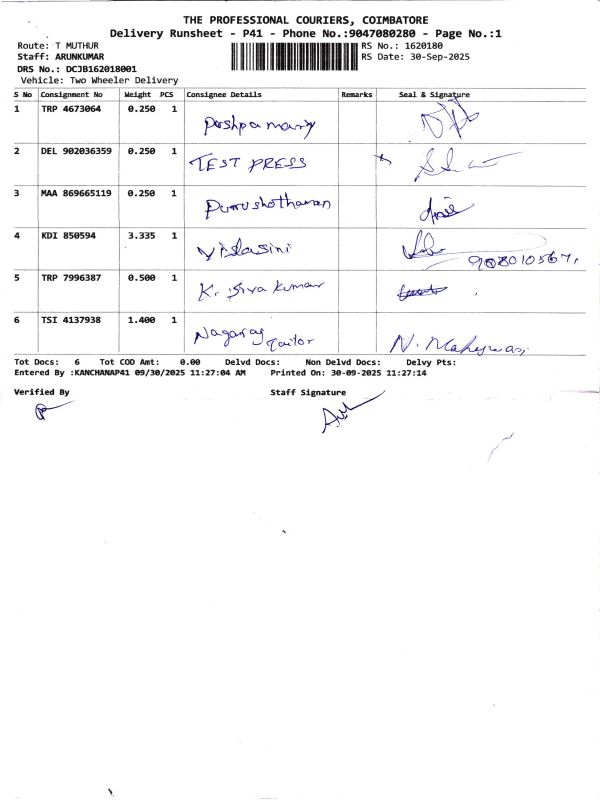 THE PROFESSIONAL COURIERS, COIMBATORE
Delivery Runsheet - P41 - Phone No.:9047080280 - Page No.:1
Route: T MUTHUR RS No.: 1620180
Staff: ARUNKUMAR RS Date: 30-Sep-2025
DRS No.: DCJB162018001
Vehicle: Two Wheeler Delivery
S No Consignment No Weight PCS Consignee Details Remarks Seal & Signature
1 TRP 4673064 0.250 1 Pushpa mary
2 DEL 902036359 0.250 1 TEST PRESS
3 MAA 869665119 0.250 1 Purushothaman
4 KDI 850594 3.335 1 Vilasini
5 TRP 7996387 0.500 1 K. Siva Kumar
6 TSI 4137938 1.400 1 Nagaraj
tailor N. Maheswari
Tot Docs: 6 Tot COD Amt: 0.00 Delvd Docs: Non Delvd Docs: Delvy Pts:
Entered By :KANCHANAP41 09/30/2025 11:27:04 AM Printed On: 30-09-2025 11:27:14
Verified By Staff Signature